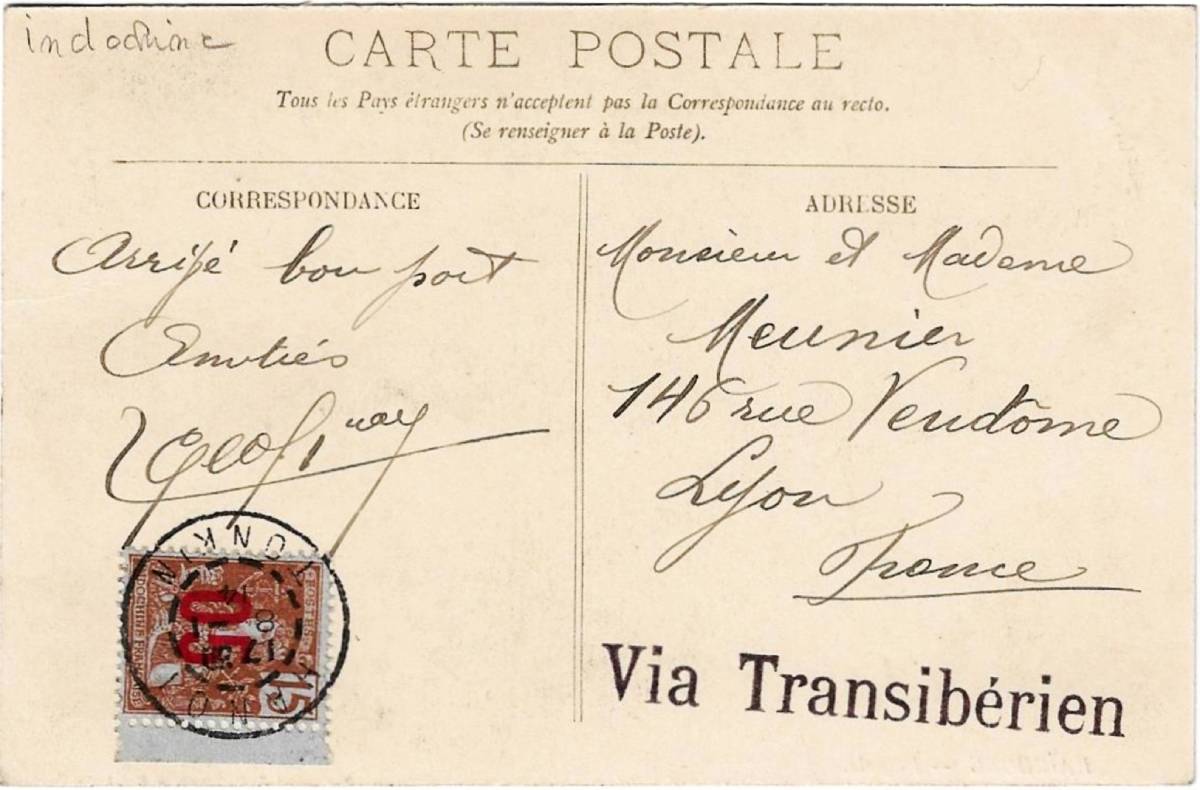 indochine
CARTE POSTALE
Tous les Pays étrangers n'acceptent pas la Correspondance au recto.
(Se renseigner à la Poste).
CORRESPONDANCE
Arrivé bon port
Amitiés
ADRESSE
Monsieur et Madame
Meunier
146 rue Vendôme
Lyon
France
TONKIN
POSTES
INDOCHINE FRANÇAISE
05
15
Via Transibérien